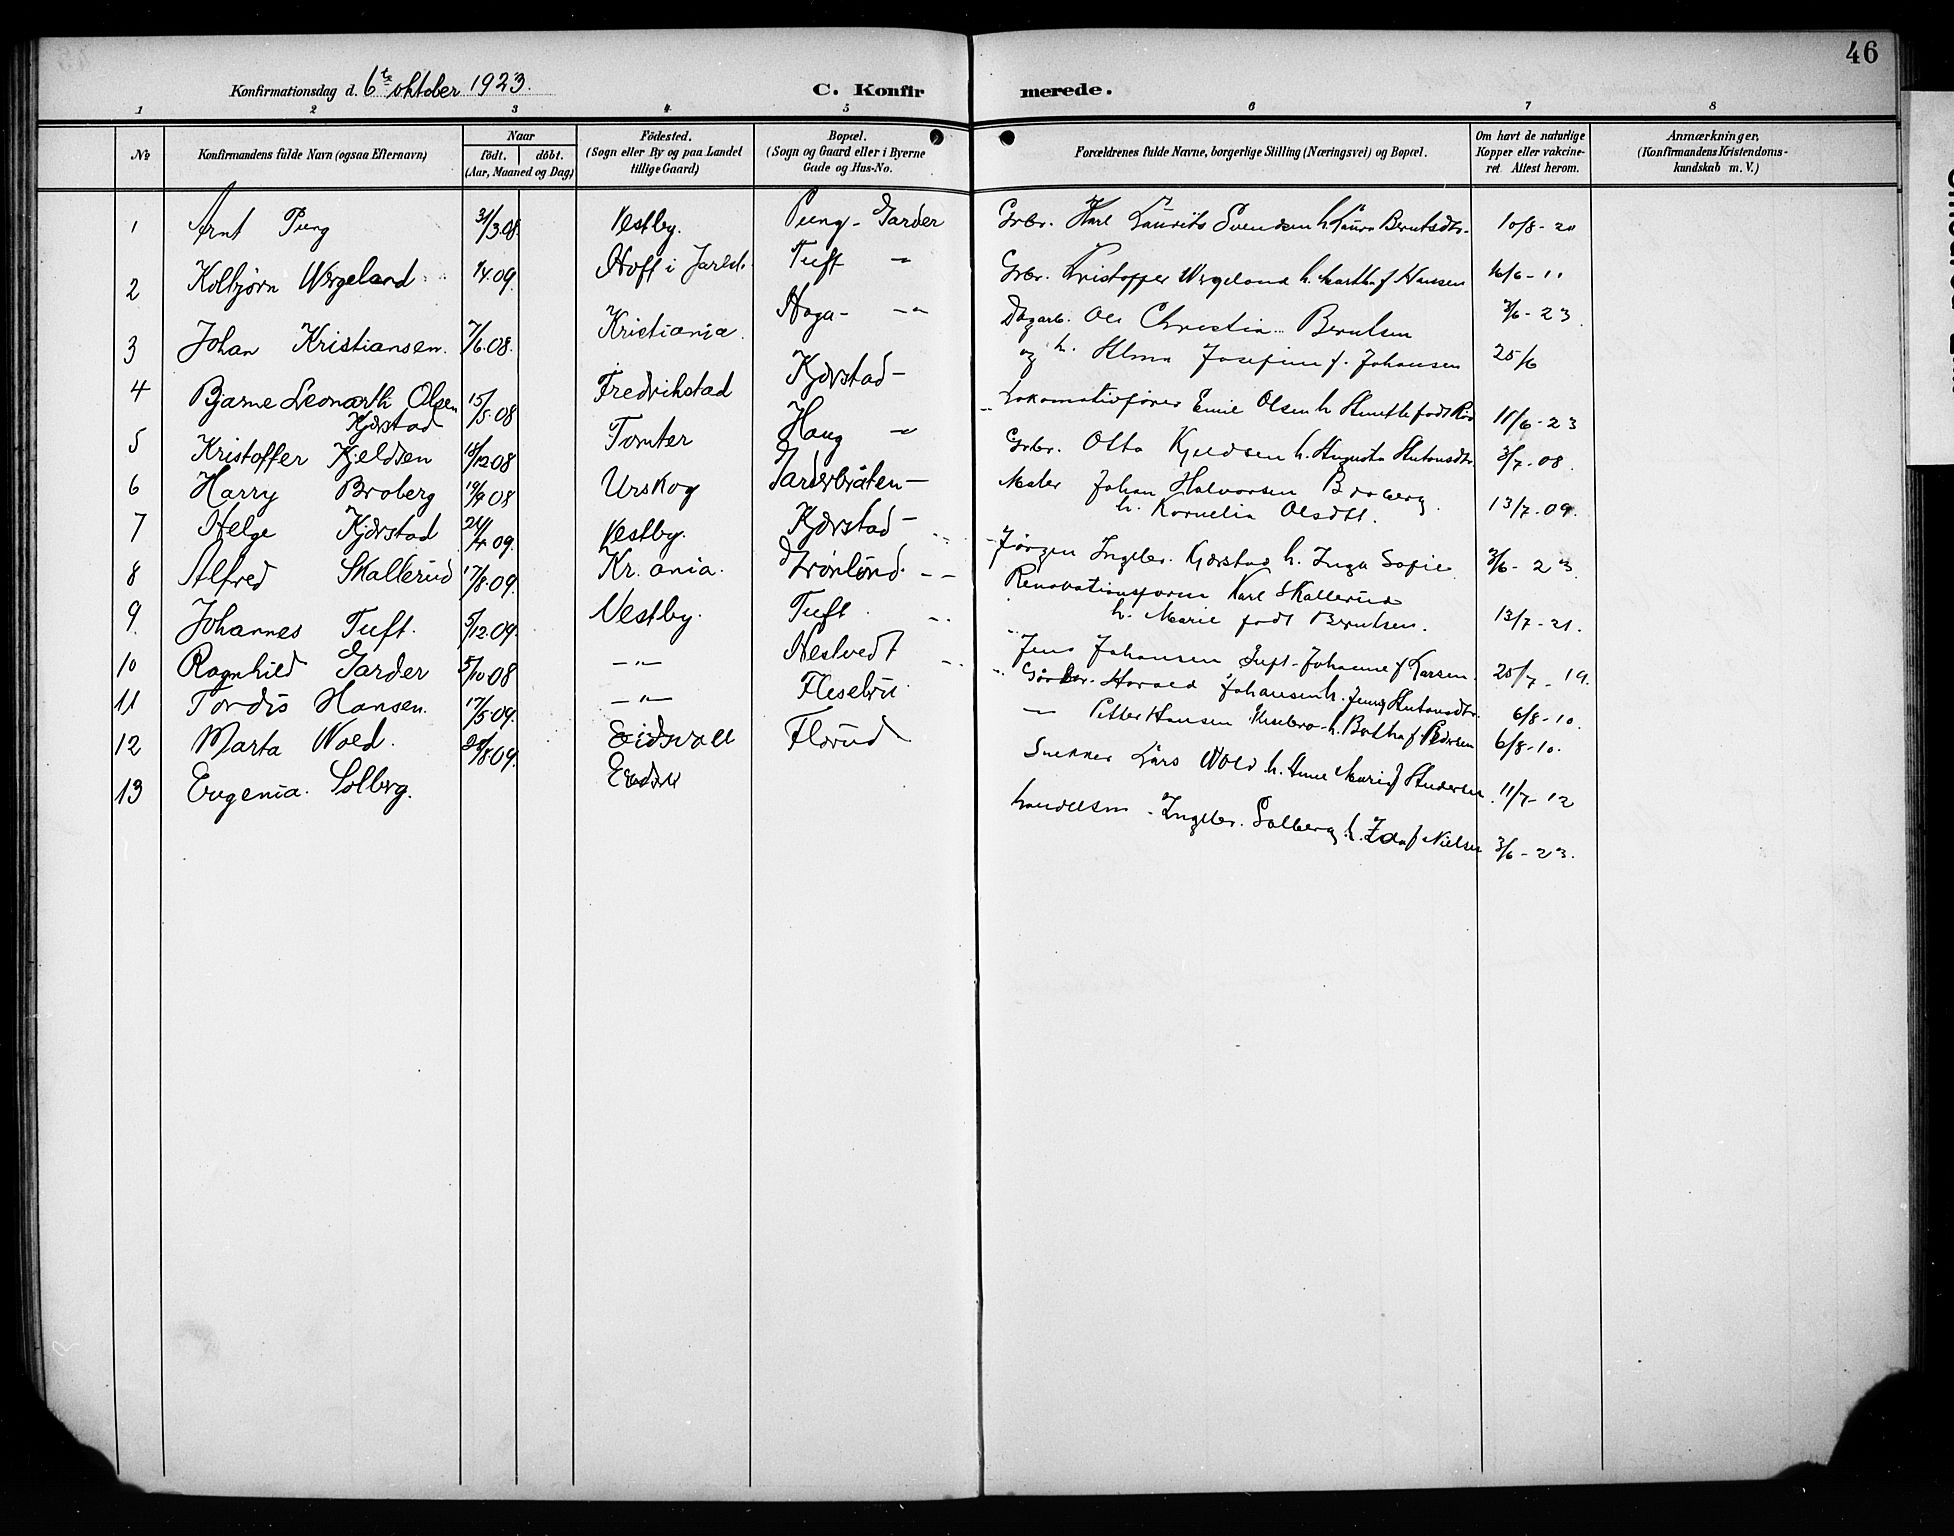 46
Konfirmationsdag d. 6te oktober 1923.
C. Konfirmerede.
1 2 3 4 5 6 7 8
No
Konfirmandens fulde Navn (ogsaa Efternavn)
Naar
födt. döbt.
(Aar, Maaned og Dag)
Födested.
(Sogn eller By og paa Landet
tillige Gaard)
Bopæl.
(Sogn og Gaard eller i Byerne
Gade og Hus-No.
Forældrenes fulde Navne, borgerlige Stilling (Næringsvei) og Bopæl.
Om havt de naturlige
Kopper eller vakcine-
ret Attest herom.
Anmærkninger,
(Konfirmandens Kristendoms-
kundskab m. V.)
1 Arnt Pung 31/3.08. Vestby. Pung - Garder Grbr. Karl Laurits Svendsen h. Laura Berntsdtr. 10/8-20
2 Kolbjørn Wergeland 1/4.09. Hoff i Jarlsb. Tuft -"- Grbr. Kristoffer Wergeland h. Martha f Hansen 16/6-11
3 Johan Kristiansen. 7/6.08. Kristiania. Haga- -"- Dagarb. Ole Christian Berntsen 3/6-23.
og h. Alma Josefine f. Johansen 25/6
4 Bjarne Leonarth Olsen 15/5.08 Fredrikstad Kjærstad - Lokomotivfører Emil Olsen h. født 11/6-23
Kjærstad
5 Kristoffer Kjeldsen 18/12 08 Tomter Haug -"- Grbr. Otto Kjeldsen h. Augusta Antonsdtr. 3/7-08.
6 Harry Broberg 19/9 08 Urskog Garderbråten - Maler Johan Halvorsen Broberg
h. Kornelia Olsdtt. 13/7-09.
7 Helge Kjærstad 24/4 09. Vestby. Kjærstad - Jørgen Ingebr. Kjærstad h. Inga Sofie 3/6-23.
8 Alfred Skallerud 17/8.09. Kr.ania. Grønlund. - - Renovationsform Karl Skallerud
h. Marie født Berntsen. 13/7-21.
9. Johannes Tuft. 5/12.09. Vestby. Tuft. Jens Johansen Tuft - Johanne f Larsen. 25/7-19.
10 Ragnhild Garder 5/10 08 -"- Nestvedt Harald Johansen h. Jenny Antonsdtr. 6/8-10.
11 Tordis Hansen. 17/5.09. -"- Flesebru. - Petter Hansen h. Bertha f Pedersen 6/8-10.
12 Marta Wold. 20/8 09. Eidsvoll Florud Snekker Lars Wold h. Anne Marie f Andersen 11/7-12
13 Eugenia. Solberg. Handelsm - Ingebr. Solberg h. Ida f Nielsen 3/6-23.